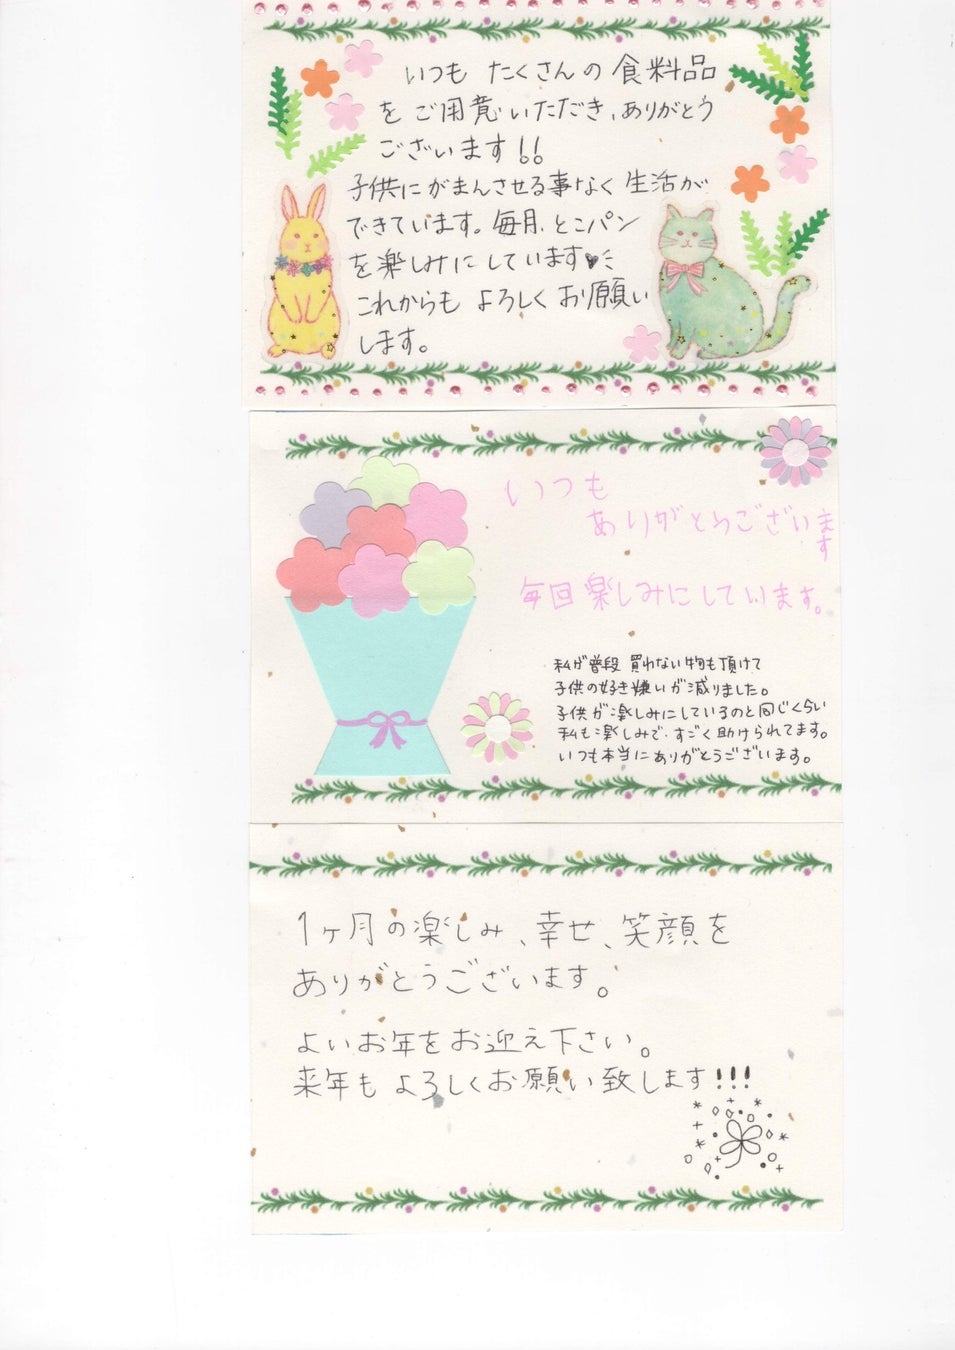 いつも たくさんの 食料品
を ご用意いただき、ありがとう
ございます!!
子供にがまんさせる事なく 生活が
できています。毎月、とこパン
を楽しみに しています♥
これからも よろしく お願い
します。
いつも
ありがとうございま
す
毎回 楽しみにしています。
私が普段 買わない物も頂けて
子供の好き嫌いが減りました。
子供が楽しみにしているのと同じくらい
私も楽しみで、すごく助けられてます。
いつも本当にありがとうございます。
1ヶ月の楽しみ、幸せ、笑顔を
ありがとうございます。
よいお年をお迎え下さい。
来年も よろしくお願い致します!!!